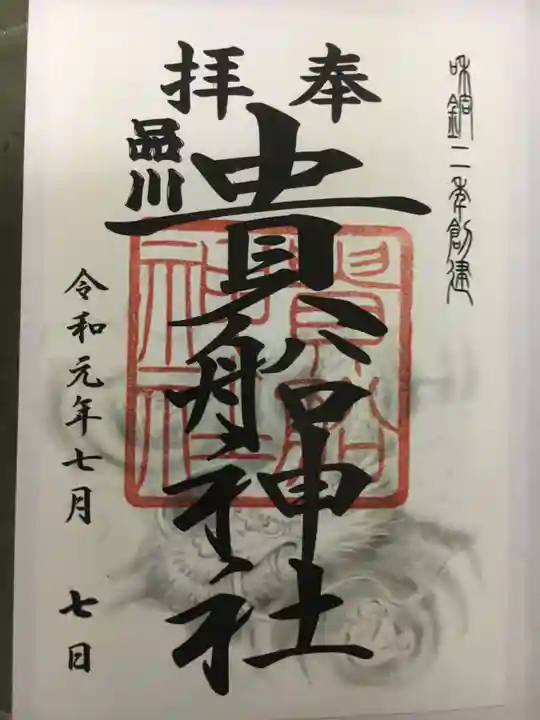 和銅二年創建
奉拝
品川
貴船神社
貴船
神社
令和元年七月七日